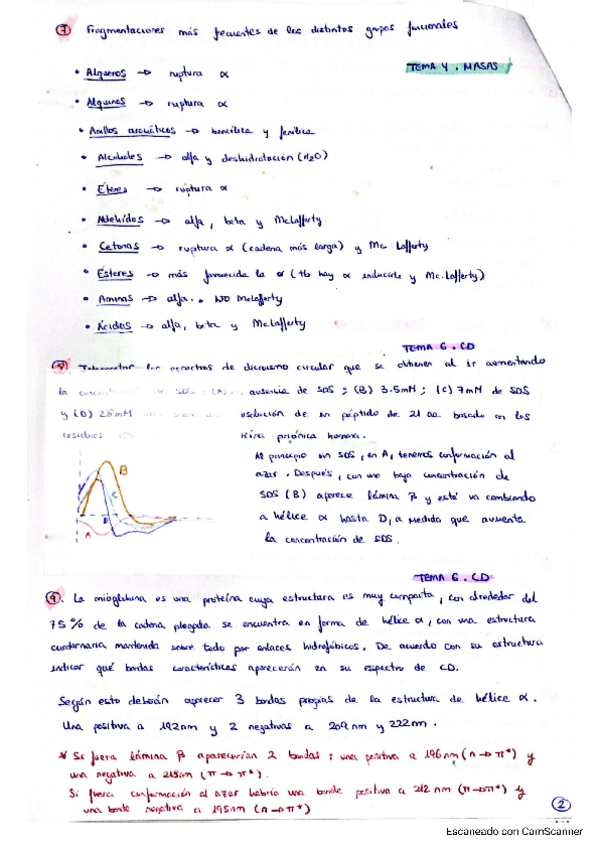 7 Fragmentaciones más frecuentes de los distintos grupos funcionales
TEMA 4. MASAS
• Alquenos → ruptura α
• Alquinos → ruptura α
• Anillos aromáticos → bencílica y fenílica
• Alcoholes → alfa y deshidratación (H2O)
• Éteres → ruptura α
• Aldehídos → alfa, beta y McLafferty
• Cetonas → ruptura α (cadena más larga) y Mc Lafferty
• Ésteres → más favorecida la α (tb hay α inducida y Mc.Lafferty)
• Aminas → alfa.. NO McLafferty
• Ácidos → alfa, beta y McLafferty
TEMA 6. CD
los espectros de dicroismo circular que se obtienen al ir aumentando
la ausencia de SDS ; (B) 3.5mM ; (C) 7mM de SDS
y (D) 28mM solución de un péptido de 21 aa basado en los
residuos priónica humana.
Al principio sin SDS, en A, tenemos conformación al
azar. Después, con una baja concentración de
SDS (B) aparece lámina β y está va cambiando
a hélice α hasta D, a medida que aumenta
la concentración de SDS.
B
C
D
A
TEMA 6. CD
9. La mioglobina es una proteína cuya estructura es muy compacta, con alrededor del
75% de la cadena plegada se encuentra en forma de hélice α, con una estructura
cuaternaria mantenida sobre todo por enlaces hidrofóbicos. De acuerdo con su estructura
indicar qué bandas características aparecerán en su espectro de CD.
Según esto deberán aparecer 3 bandas propias de la estructura de hélice α.
Una positiva a 192nm y 2 negativas a 209nm y 222nm.
* Si fuera lámina β aparecerían 2 bandas : una positiva a 196nm (n→π*) y
una negativa a 218nm (π→π*).
Si fuera conformación al azar habría una banda positiva a 212 nm (π→π*) y
una banda negativa a 195nm (n→π*)
2
Escaneado con CamScanner